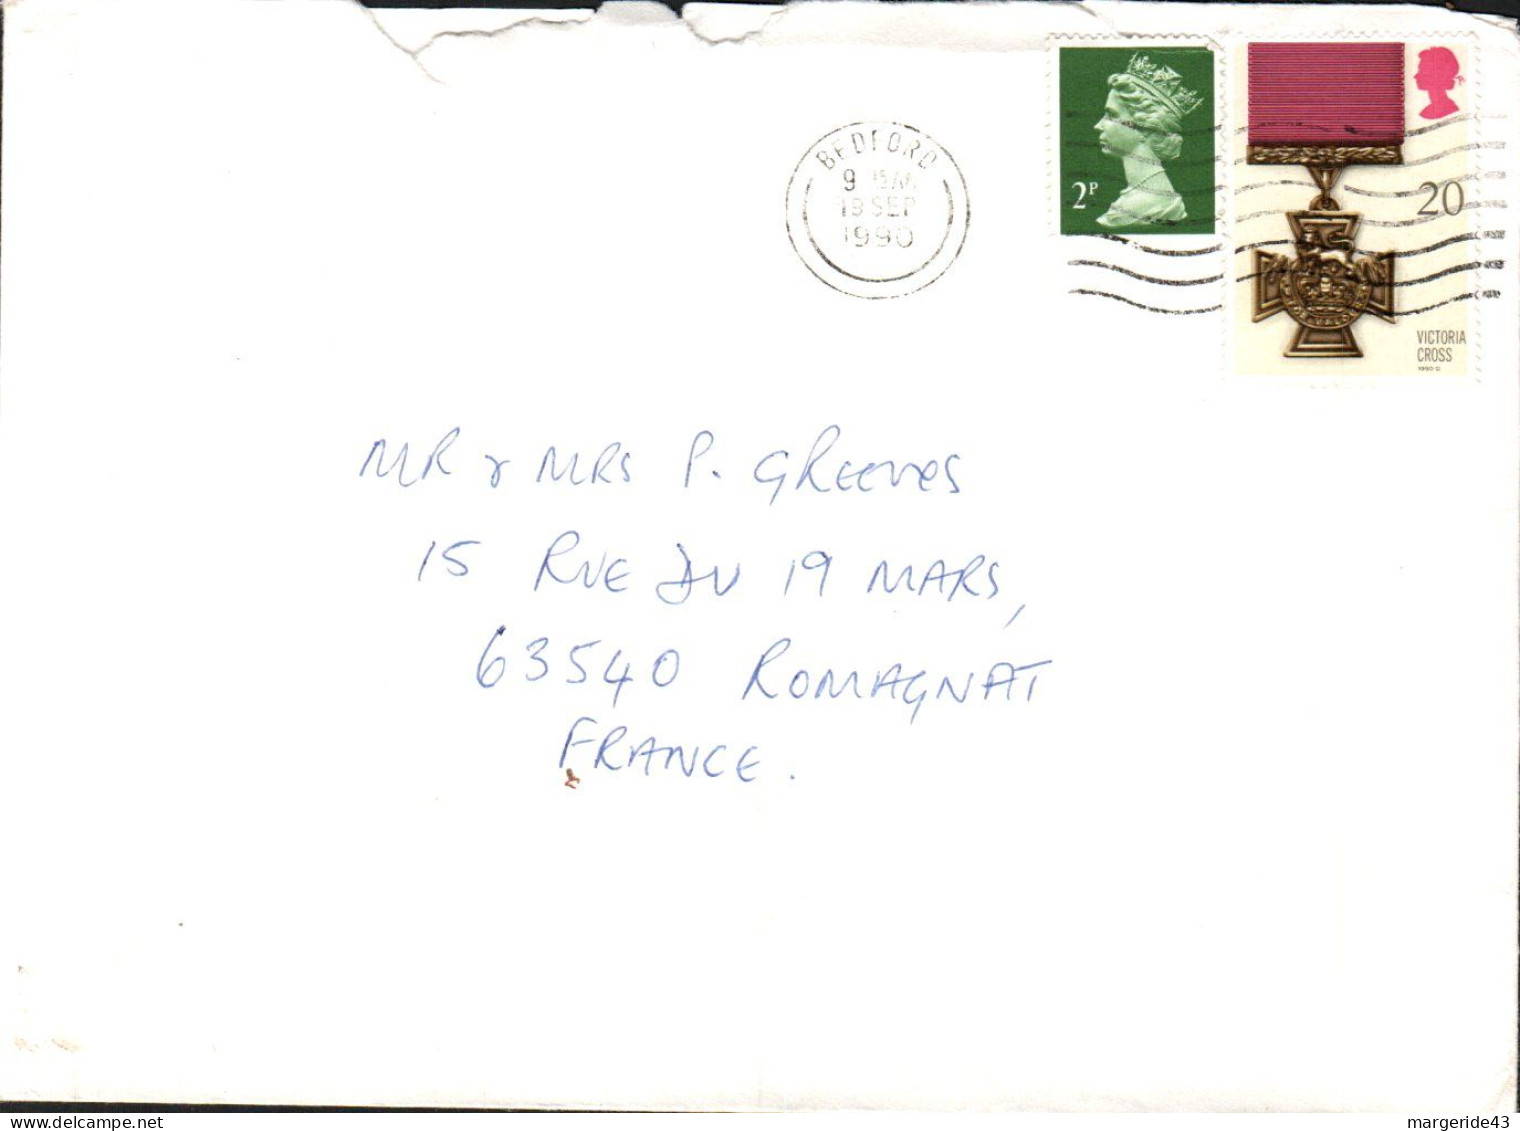 BEDFORD
9 AM
SEP
1990
2P
20
VICTORIA
CROSS
MR & MRS P. GREEVES
15 RUE DU 19 MARS,
63540 ROMAGNAT
FRANCE.
margeride43